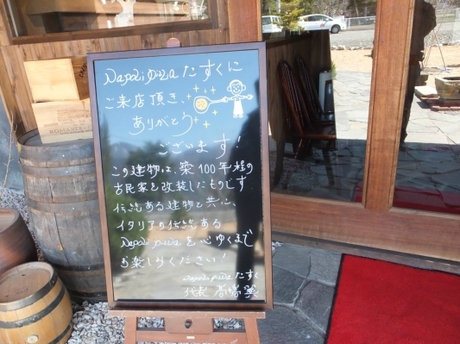 Napoli pizza たすくに
ご来店頂き、
ありがとう
ございます!
この建物は、築100年程の
古民家を改装したものです
伝統ある建物と共に、
イタリアの伝統ある
Napoli pizza を心ゆくまで
お楽しみください!
Napoli pizza たすく
代表 高嶋